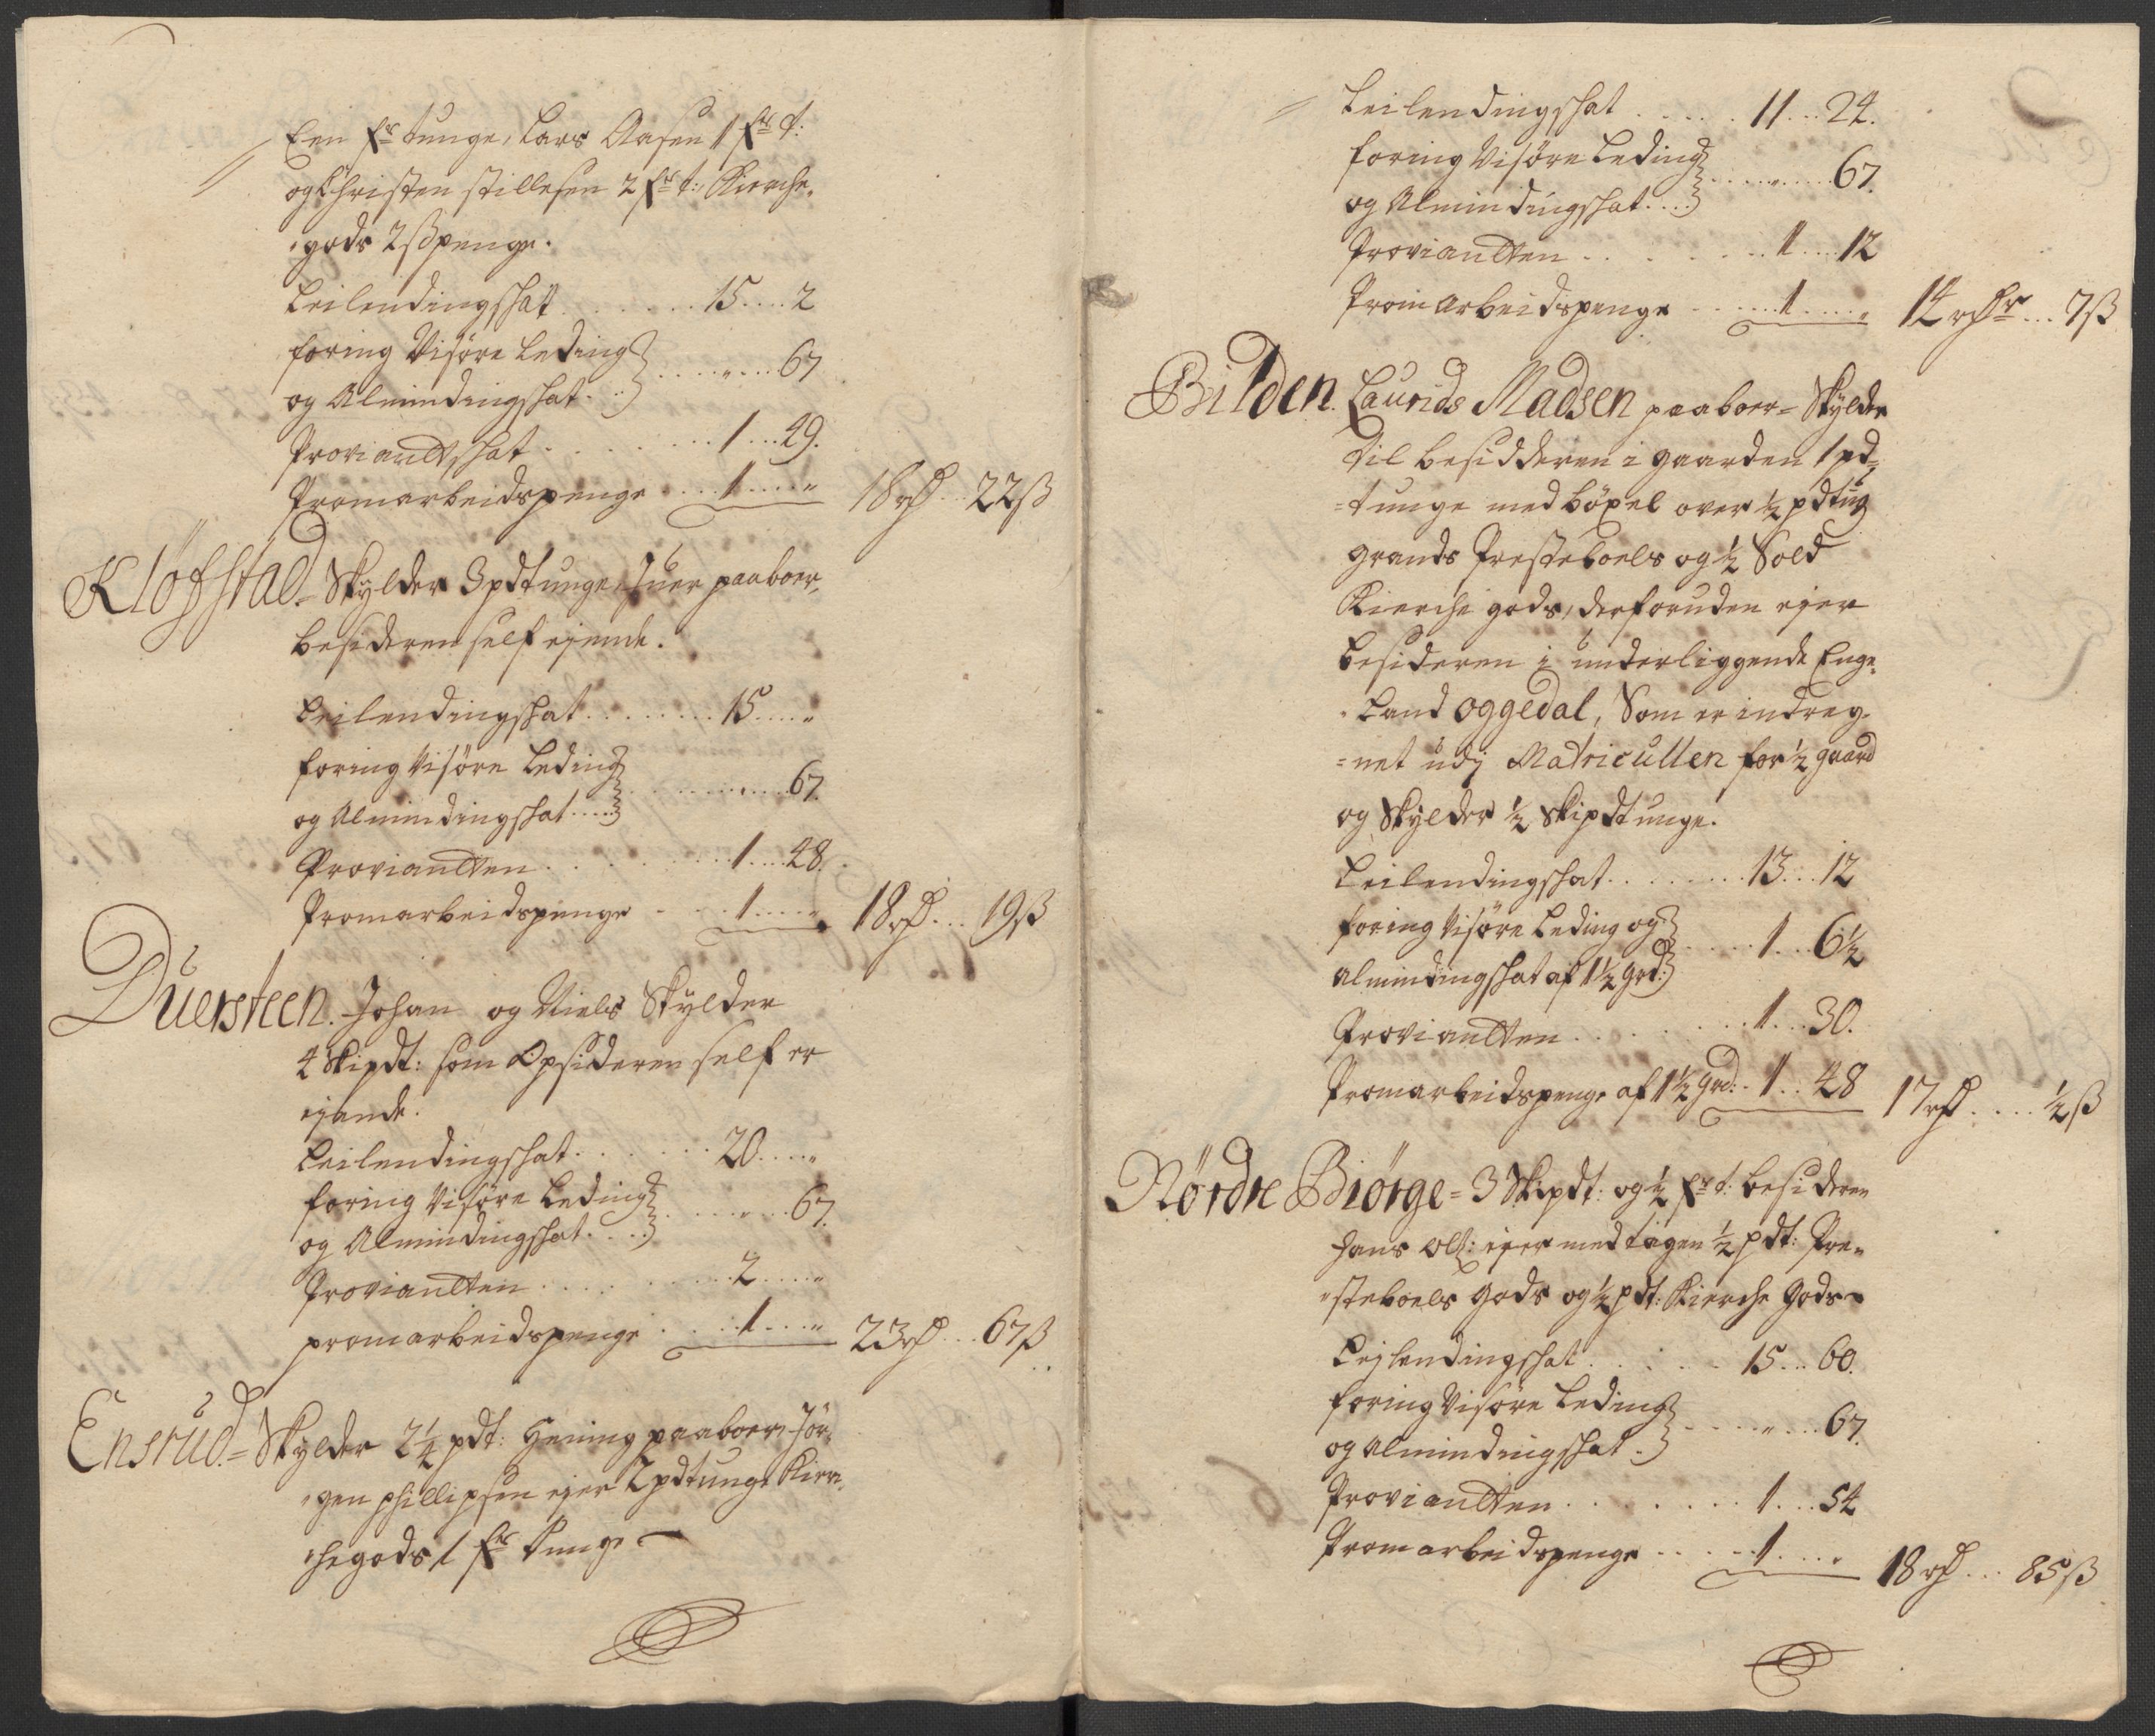 Een fr tunge, Lars Aasen 1 fr t:
og Christen Stillesen 2 fr t:, Kierche,
gods 2 ß penge.
Leilendingschatt . . . . . . . 15 . . . . 2
foring Visøre Leding
og Almindingschat. . . . . . „ . . . . 67
Proviandtschat . . . . . . . 1 . . . 49.
Fromarbeidspenge . . . 1 . . . . „ 18 rd . . . 22 ß
Kløfstad = Skylder 3 pdtunge, Iuer paaboer,
besideren self ejende.
Leilendingschat . . . . . . . . 15 . . . . „
foring Visøre Leding
og Almindingschat . . . . . . . . „ . . . . 67.
Proviandten . . . . . . . . 1 . . . 48.
Fromarbeidspenge . . . 1 . . . . „ 18 rd . . . 19 ß
Duersteen. Johan og Niels Skylder
4 Skipdt: som Opsideren self er
ejande.
Leilendingschat . . . . . . . 20 . . . . „
foring Visøre Leding
og Almindingschat . . . . . . „ . . . 67.
Proviandten . . . . . . . . 2 . . . . „
promarbeidspenge . . . . 1 . . . „ 23 rd . . . 67 ß
Ensrud = Skylder 2 1/4 pdt: Hening paaboer, Jør,
„gen phillipsen ejer 2 pdtunge Kier,
„chegods 1 fr tunge —
Leilendingschat . . . . . 11 . . . 24.
foring Visøre Leding
og Almindingschat . . . . . . . „ . . . . 67.
Proviandten . . . . . . . . 1 . . . . 12
From arbeidspenge . . . . . 1 . . . . „ 14 rdr . . . 7 ß
Bilden. Laurids Madsen paaboer = Skylder
til besidderen i gaarden 1 pd=
=tunge med bøxel over 1/2 pdtug
grands Presteboels og 1/2 Sold
Kierche gods, derforuden ejer
besideren i underliggende Enge,
„Land Oggedal, Som er indreg,
=net udj Matricullen for 1/2 gaard
og Skylder 1/2 Skipdtunge.
Leilendingschat . . . . . . . . 13 . . . 12
foring Visøre Leding og
Almindingschat af 1 1/2 grd: . . . . 1 . . 6 1/2
Proviandten . . . . . . . . 1 . . . 30.
Fromarbeidspenge af 1 1/2 grd: . 1 . . 48 17 rd . . . . 1/2 ß
Nørdre Biørge = 3 Skipdt: og 1/2 fr t: besideren
Hans Ols: ejer med tagen 1/2 pdt: Pre„
„steboels gods og 1/2 pdt: Kierche Gods
Lejlendingschat . . . . . . 15 . . . 60.
foring Visøre Leding
og Almindingschat . . . . „ . . . 67.
Proviandten . . . . . . . . 1 . . . 54
Fromarbeidspenge . . . . . 1 . . . „ 18 rd . . . 85 ß